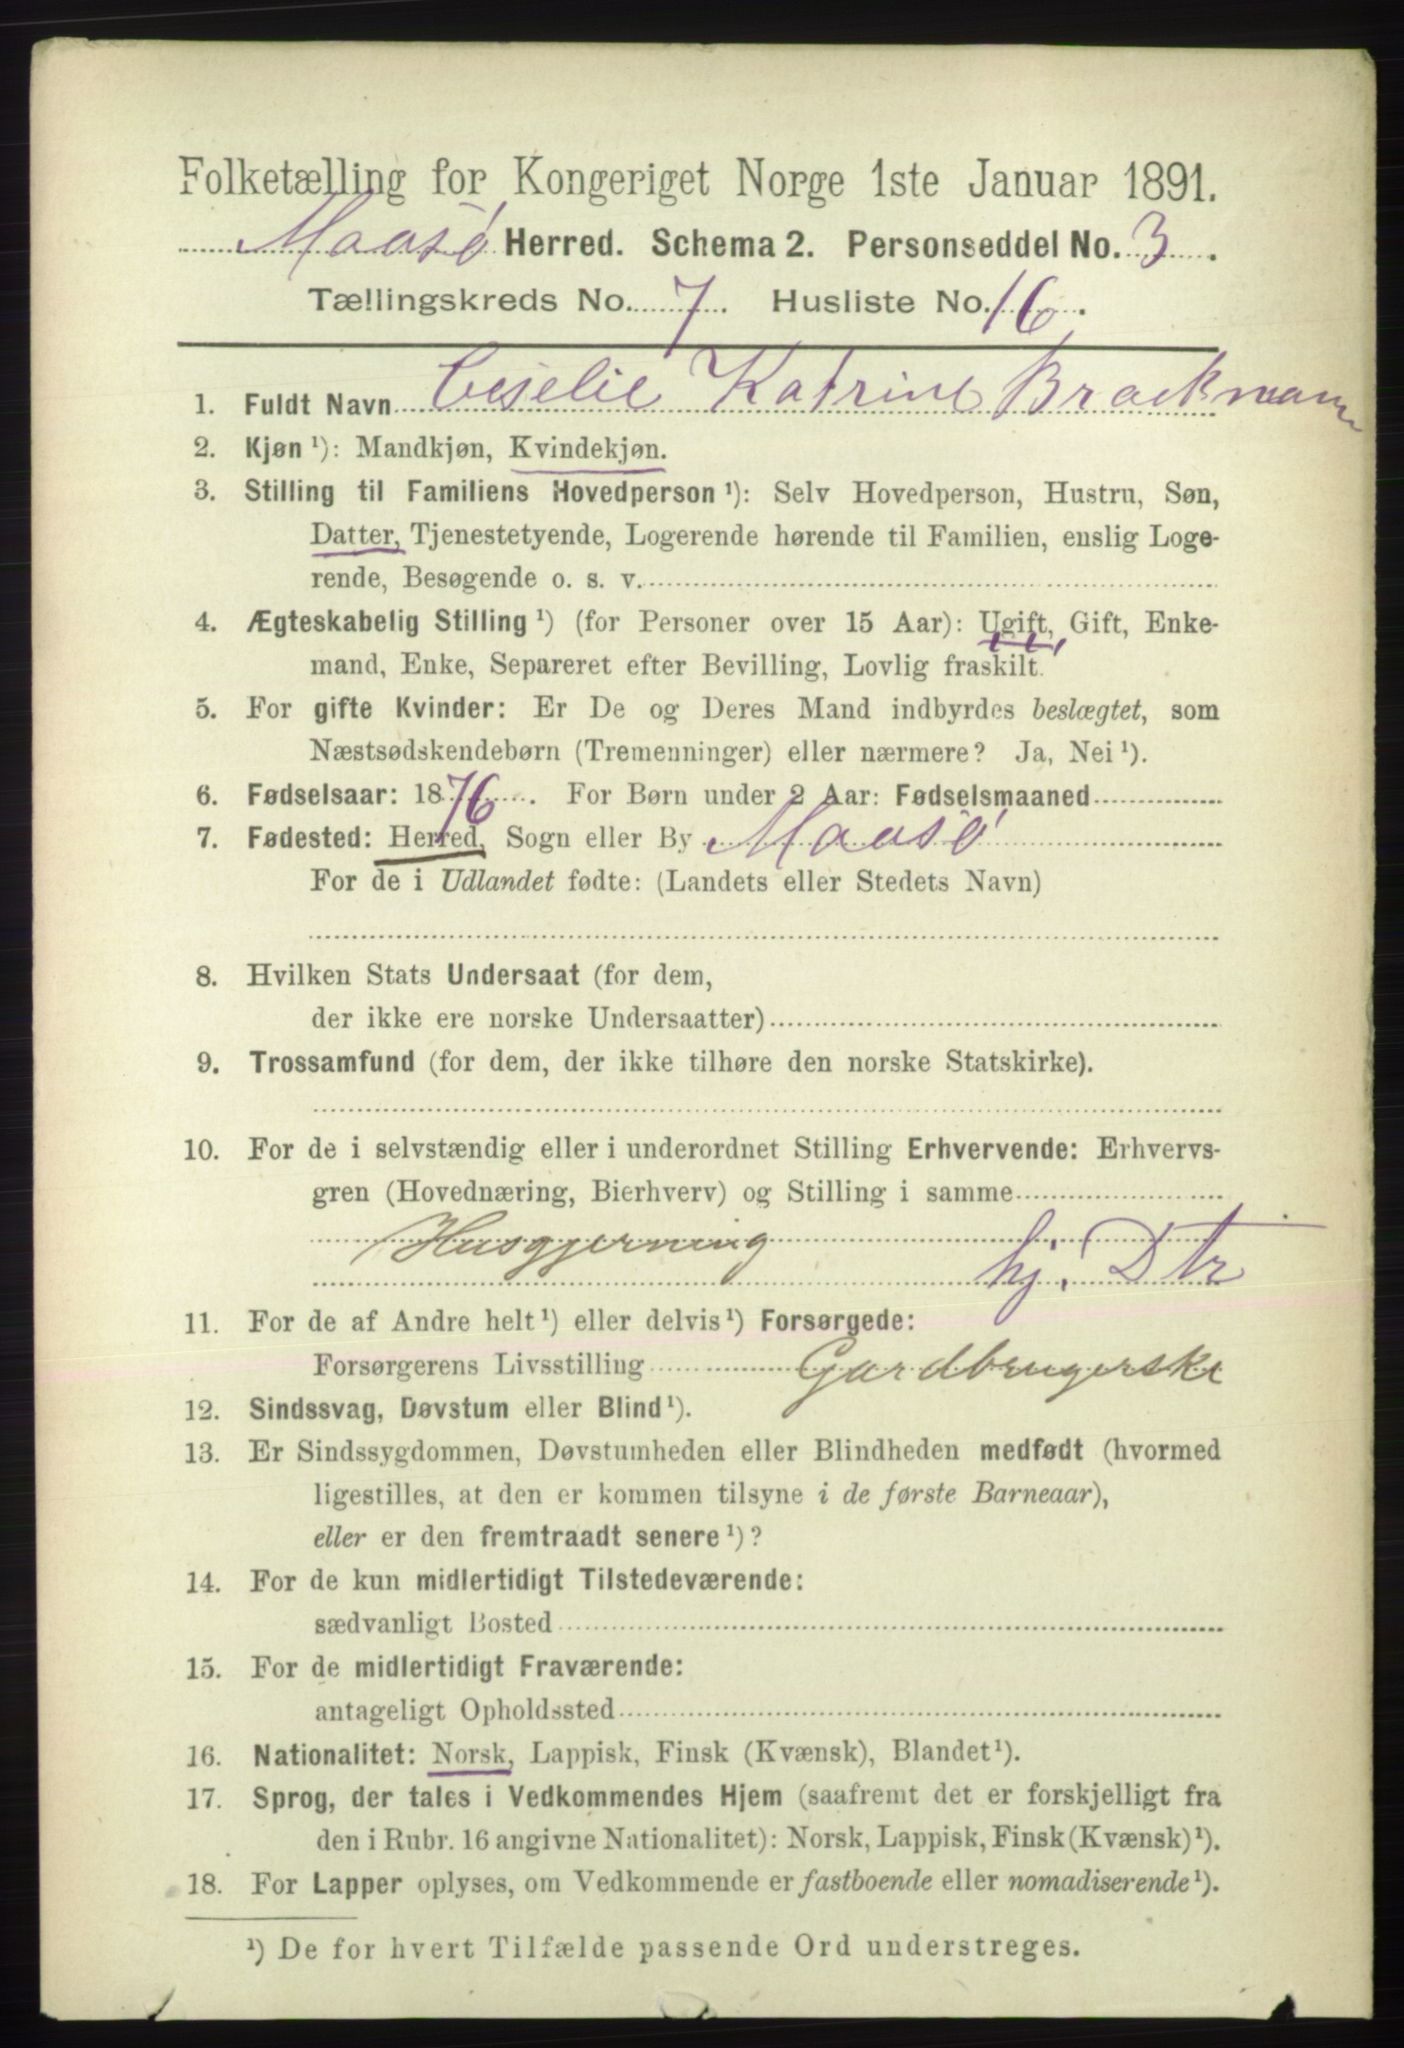 Folketælling for Kongeriget Norge 1ste Januar 1891.
Maasø Herred. Schema 2. Personseddel No. 3.
Tællingskreds No. 7. Husliste No. 16.
1. Fuldt Navn Ceselie Katrine Brackmann
2. Kjøn ¹): Mandkjøn, Kvindekjøn.
3. Stilling til Familiens Hovedperson ¹): Selv Hovedperson, Hustru, Søn,
Datter, Tjenestetyende, Logerende hørende til Familien, enslig Loge-
rende, Besøgende o. s. v.
4. Ægteskabelig Stilling ¹) (for Personer over 15 Aar): Ugift, Gift, Enke-
mand, Enke, Separeret efter Bevilling, Lovlig fraskilt.
5. For gifte Kvinder: Er De og Deres Mand indbyrdes beslægtet, som
Næstsødskendebørn (Tremenninger) eller nærmere? Ja, Nei ¹).
6. Fødselsaar: 1876. For Børn under 2 Aar: Fødselsmaaned
7. Fødested: Herred, Sogn eller By Maasø
For de i Udlandet fødte: (Landets eller Stedets Navn)
8. Hvilken Stats Undersaat (for dem,
der ikke ere norske Undersaatter)
9. Trossamfund (for dem, der ikke tilhøre den norske Statskirke).
10. For de i selvstændig eller i underordnet Stilling Erhvervende: Erhvervs-
gren (Hovednæring, Bierhverv) og Stilling i samme
Husgjerning
hj. Dtr
11. For de af Andre helt ¹) eller delvis ¹) Forsørgede:
Forsørgerens Livsstilling Gardbrugerske
12. Sindssvag, Døvstum eller Blind ¹).
13. Er Sindssygdommen, Døvstumheden eller Blindheden medfødt (hvormed
ligestilles, at den er kommen tilsyne i de første Barneaar),
eller er den fremtraadt senere ¹)?
14. For de kun midlertidigt Tilstedeværende:
sædvanligt Bosted
15. For de midlertidigt Fraværende:
antageligt Opholdssted
16. Nationalitet: Norsk, Lappisk, Finsk (Kvænsk), Blandet ¹).
17. Sprog, der tales i Vedkommendes Hjem (saafremt det er forskjelligt fra
den i Rubr. 16 angivne Nationalitet): Norsk, Lappisk, Finsk (Kvænsk) ¹).
18. For Lapper oplyses, om Vedkommende er fastboende eller nomadiserende ¹).
¹) De for hvert Tilfælde passende Ord understreges.